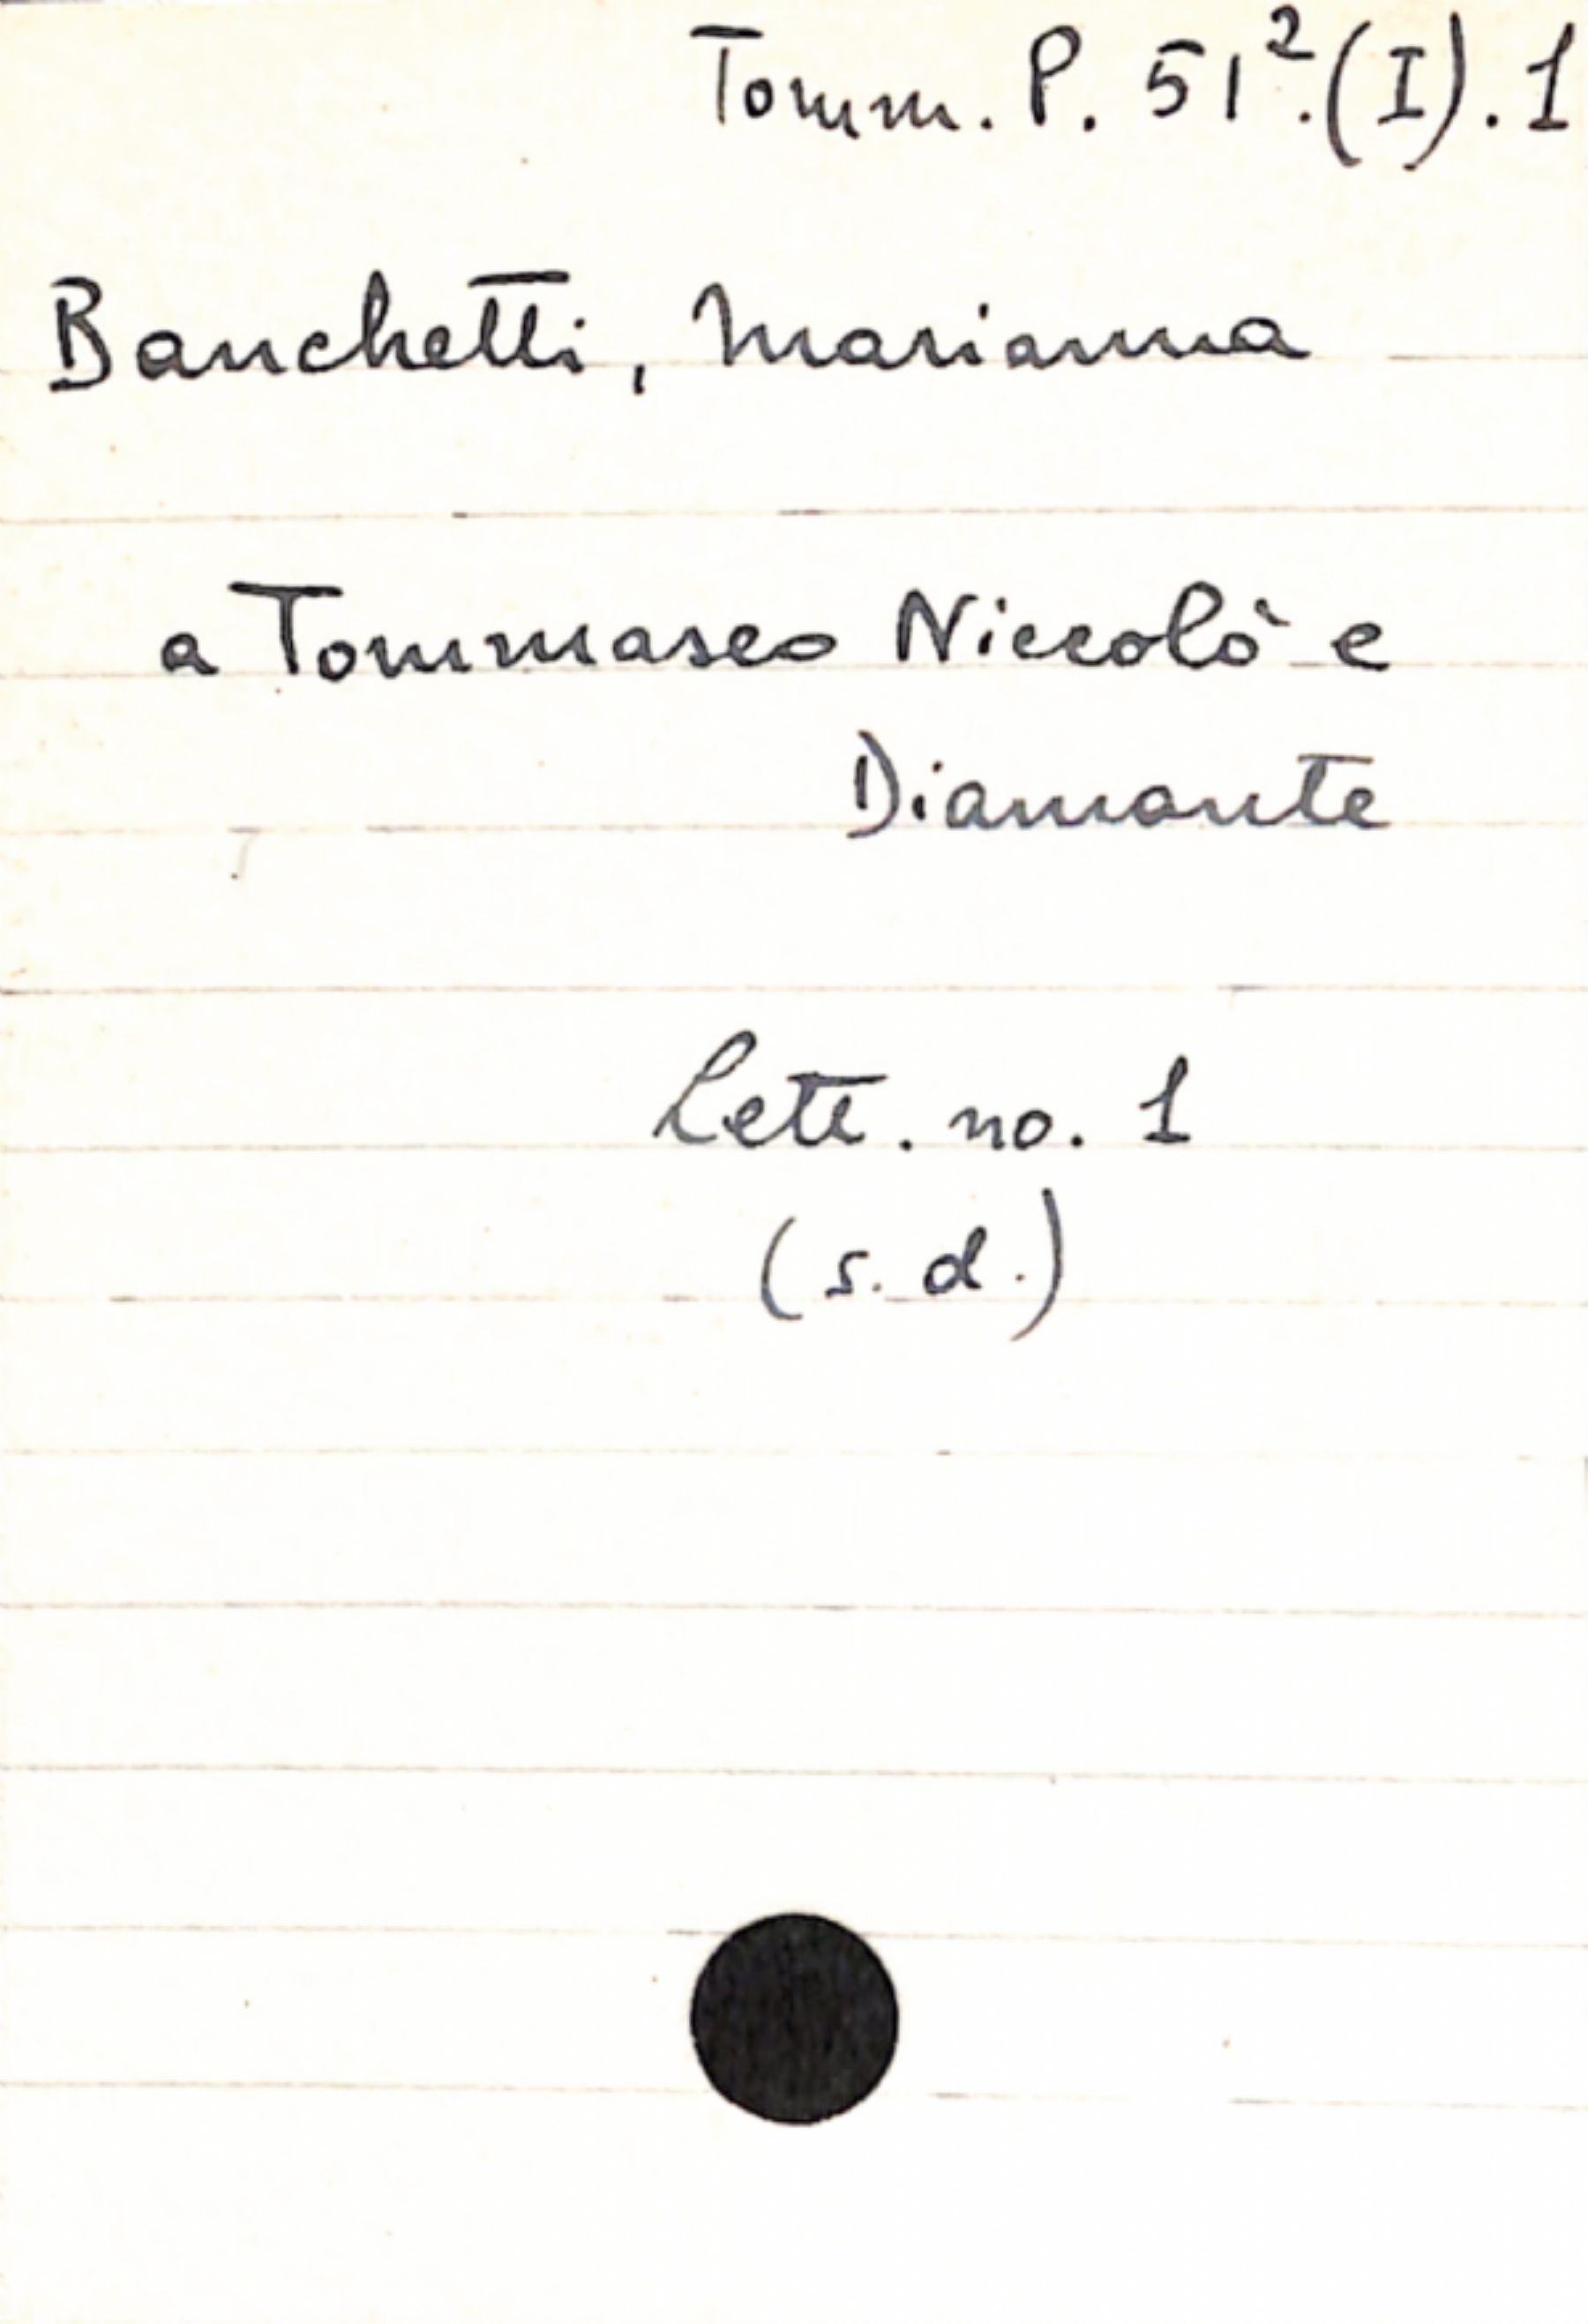 Tomm. P. 51².(I).1
Banchetti, Marianna
a Tommaseo Niccolò e
Diamante
Lett. no. 1
(s. d.)